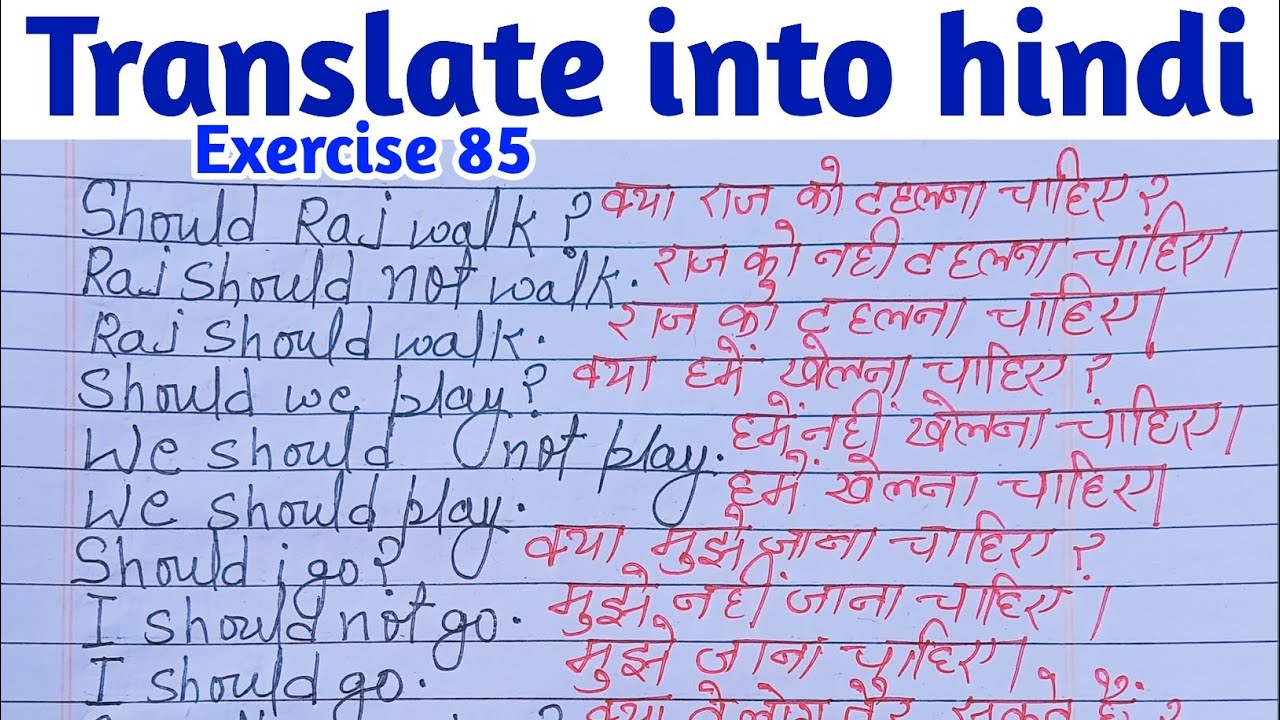 Translate into hindi
Exercise 85
Should Raj walk? क्या राज को टहलना चाहिए?
Raj should not walk. राज को नही टहलना चाहिए।
Raj should walk. राज को टहलना चाहिए।
Should we play? क्या हमें खेलना चाहिए?
We should not play. हमें नहीं खेलना चाहिए।
We should play. हमें खेलना चाहिए।
Should i go? क्या मुझे जाना चाहिए?
I should not go. मुझे नहीं जाना चाहिए।
I should go. मुझे जाना चाहिए।
क्या वे लोग तैर सकते हैं?